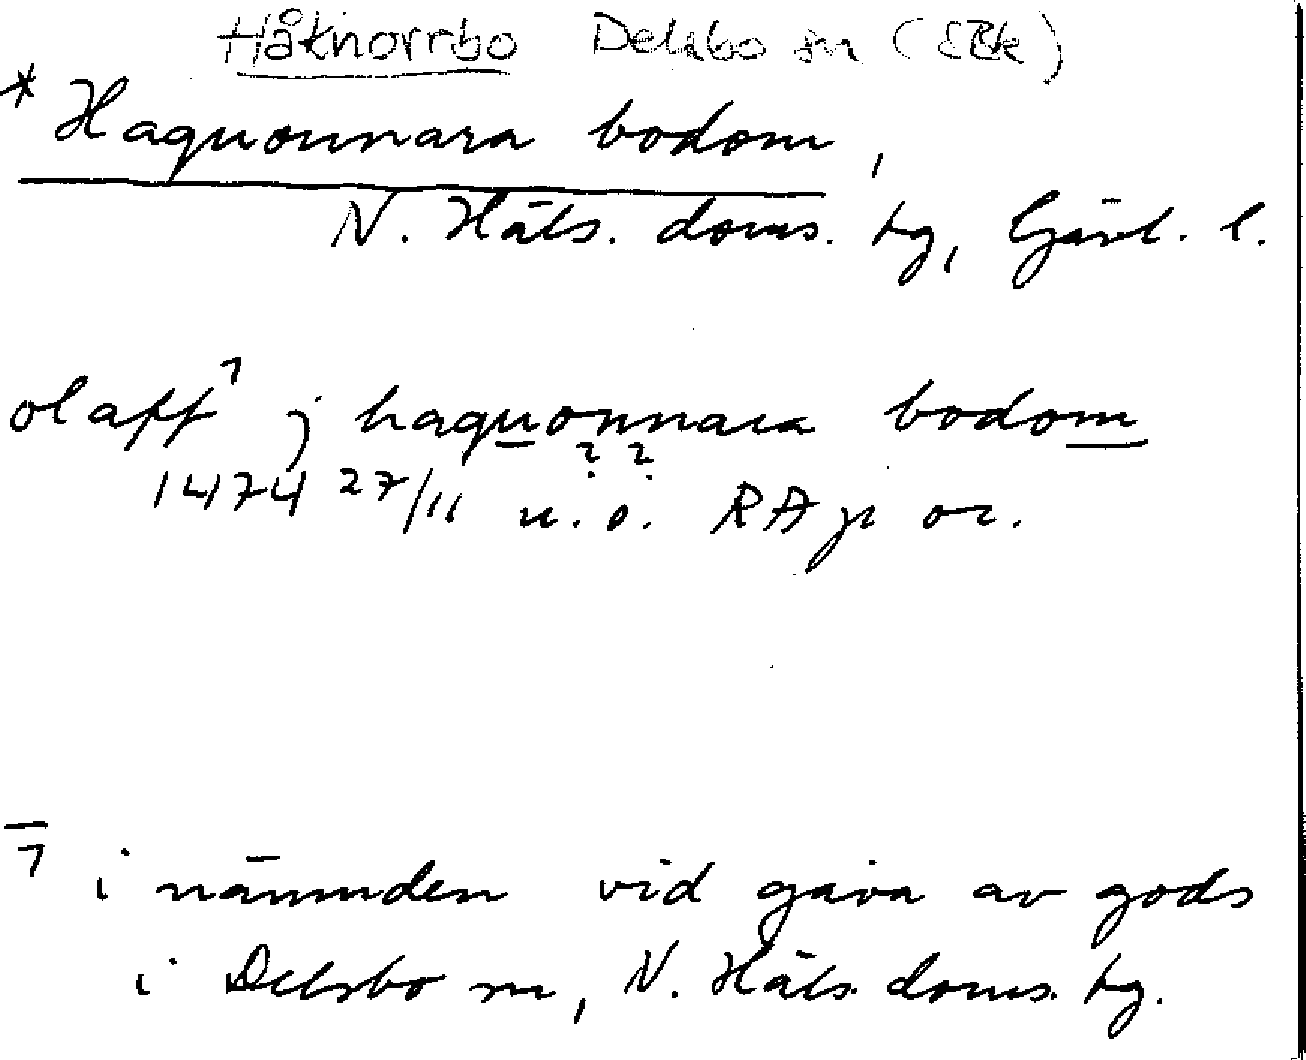 Håknorrbo Delsbo sn (EBk)
* Haquonnara bodom,
N. Häls. doms. tg, Gävl. l.
olaff ⁊ j haquonnara bodom
? ?
1474 27/11 u. o. RA p or.
⁊ i nämnden vid gåva av gods
i Delsbo sn, N. Häls. doms. tg.